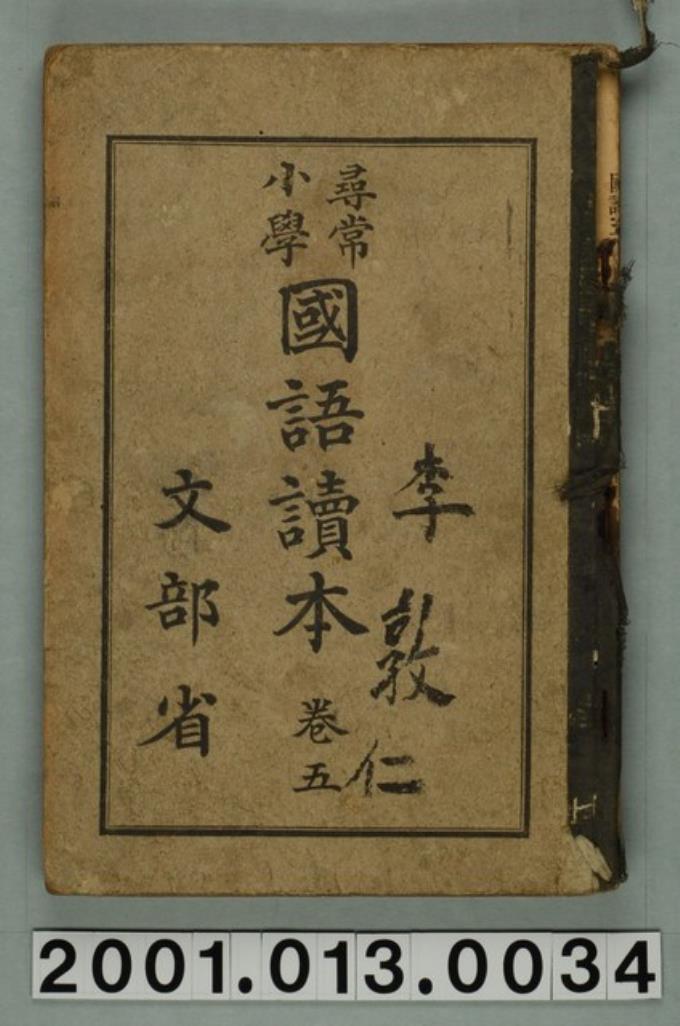 尋常
小學
國語讀本 卷五
李敦仁
文部省
2001.013.0034